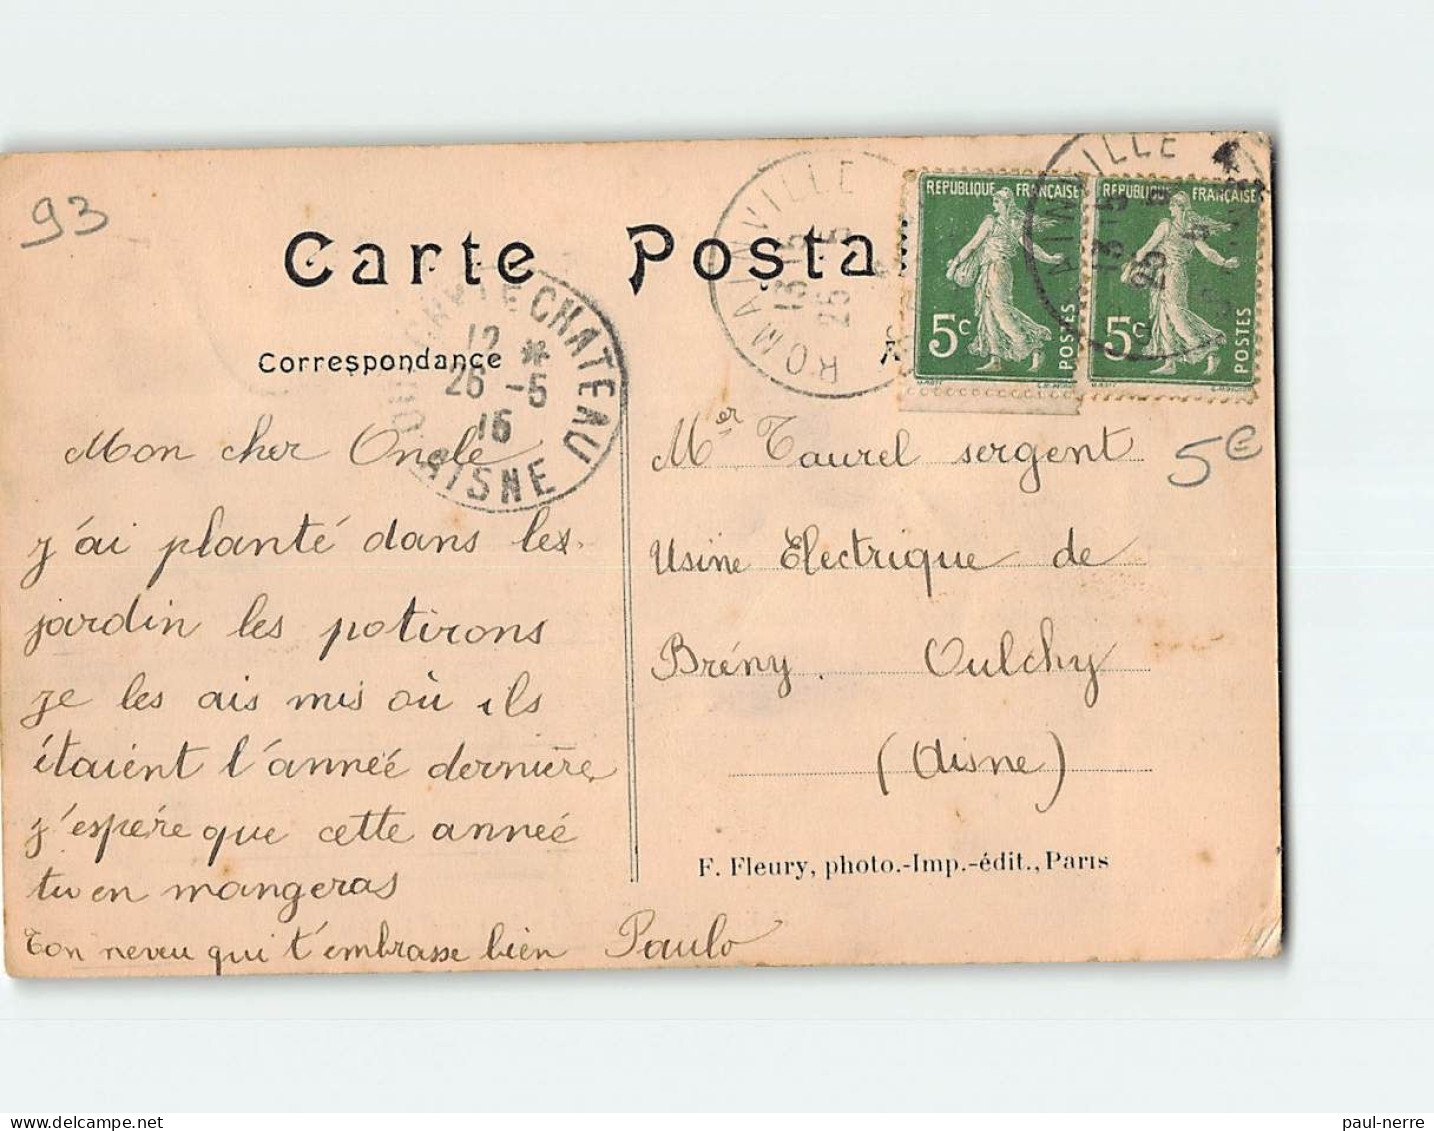 93
Carte Posta
Correspondance
ROMAINVILLE
13 15
25 5
REPUBLIQUE FRANÇAISE
5c
POSTES
REPUBLIQUE FRANÇAISE
5c
POSTES
CHATEAU
12 *
26 -5
16
AISNE
5€
Mon cher Oncle
j'ai planté dans les
jardin les potirons
je les ais mis où ils
étaient l'anneé dernière
j'espére que cette anneé
tu en mangeras
Ton neveu qui t'embrasse bien Paulo
Mer Taurel sergent
Usine Electrique de
Brény. Oulchy
(Aisne)
F. Fleury, photo.-Imp.-édit., Paris
paul-nerre